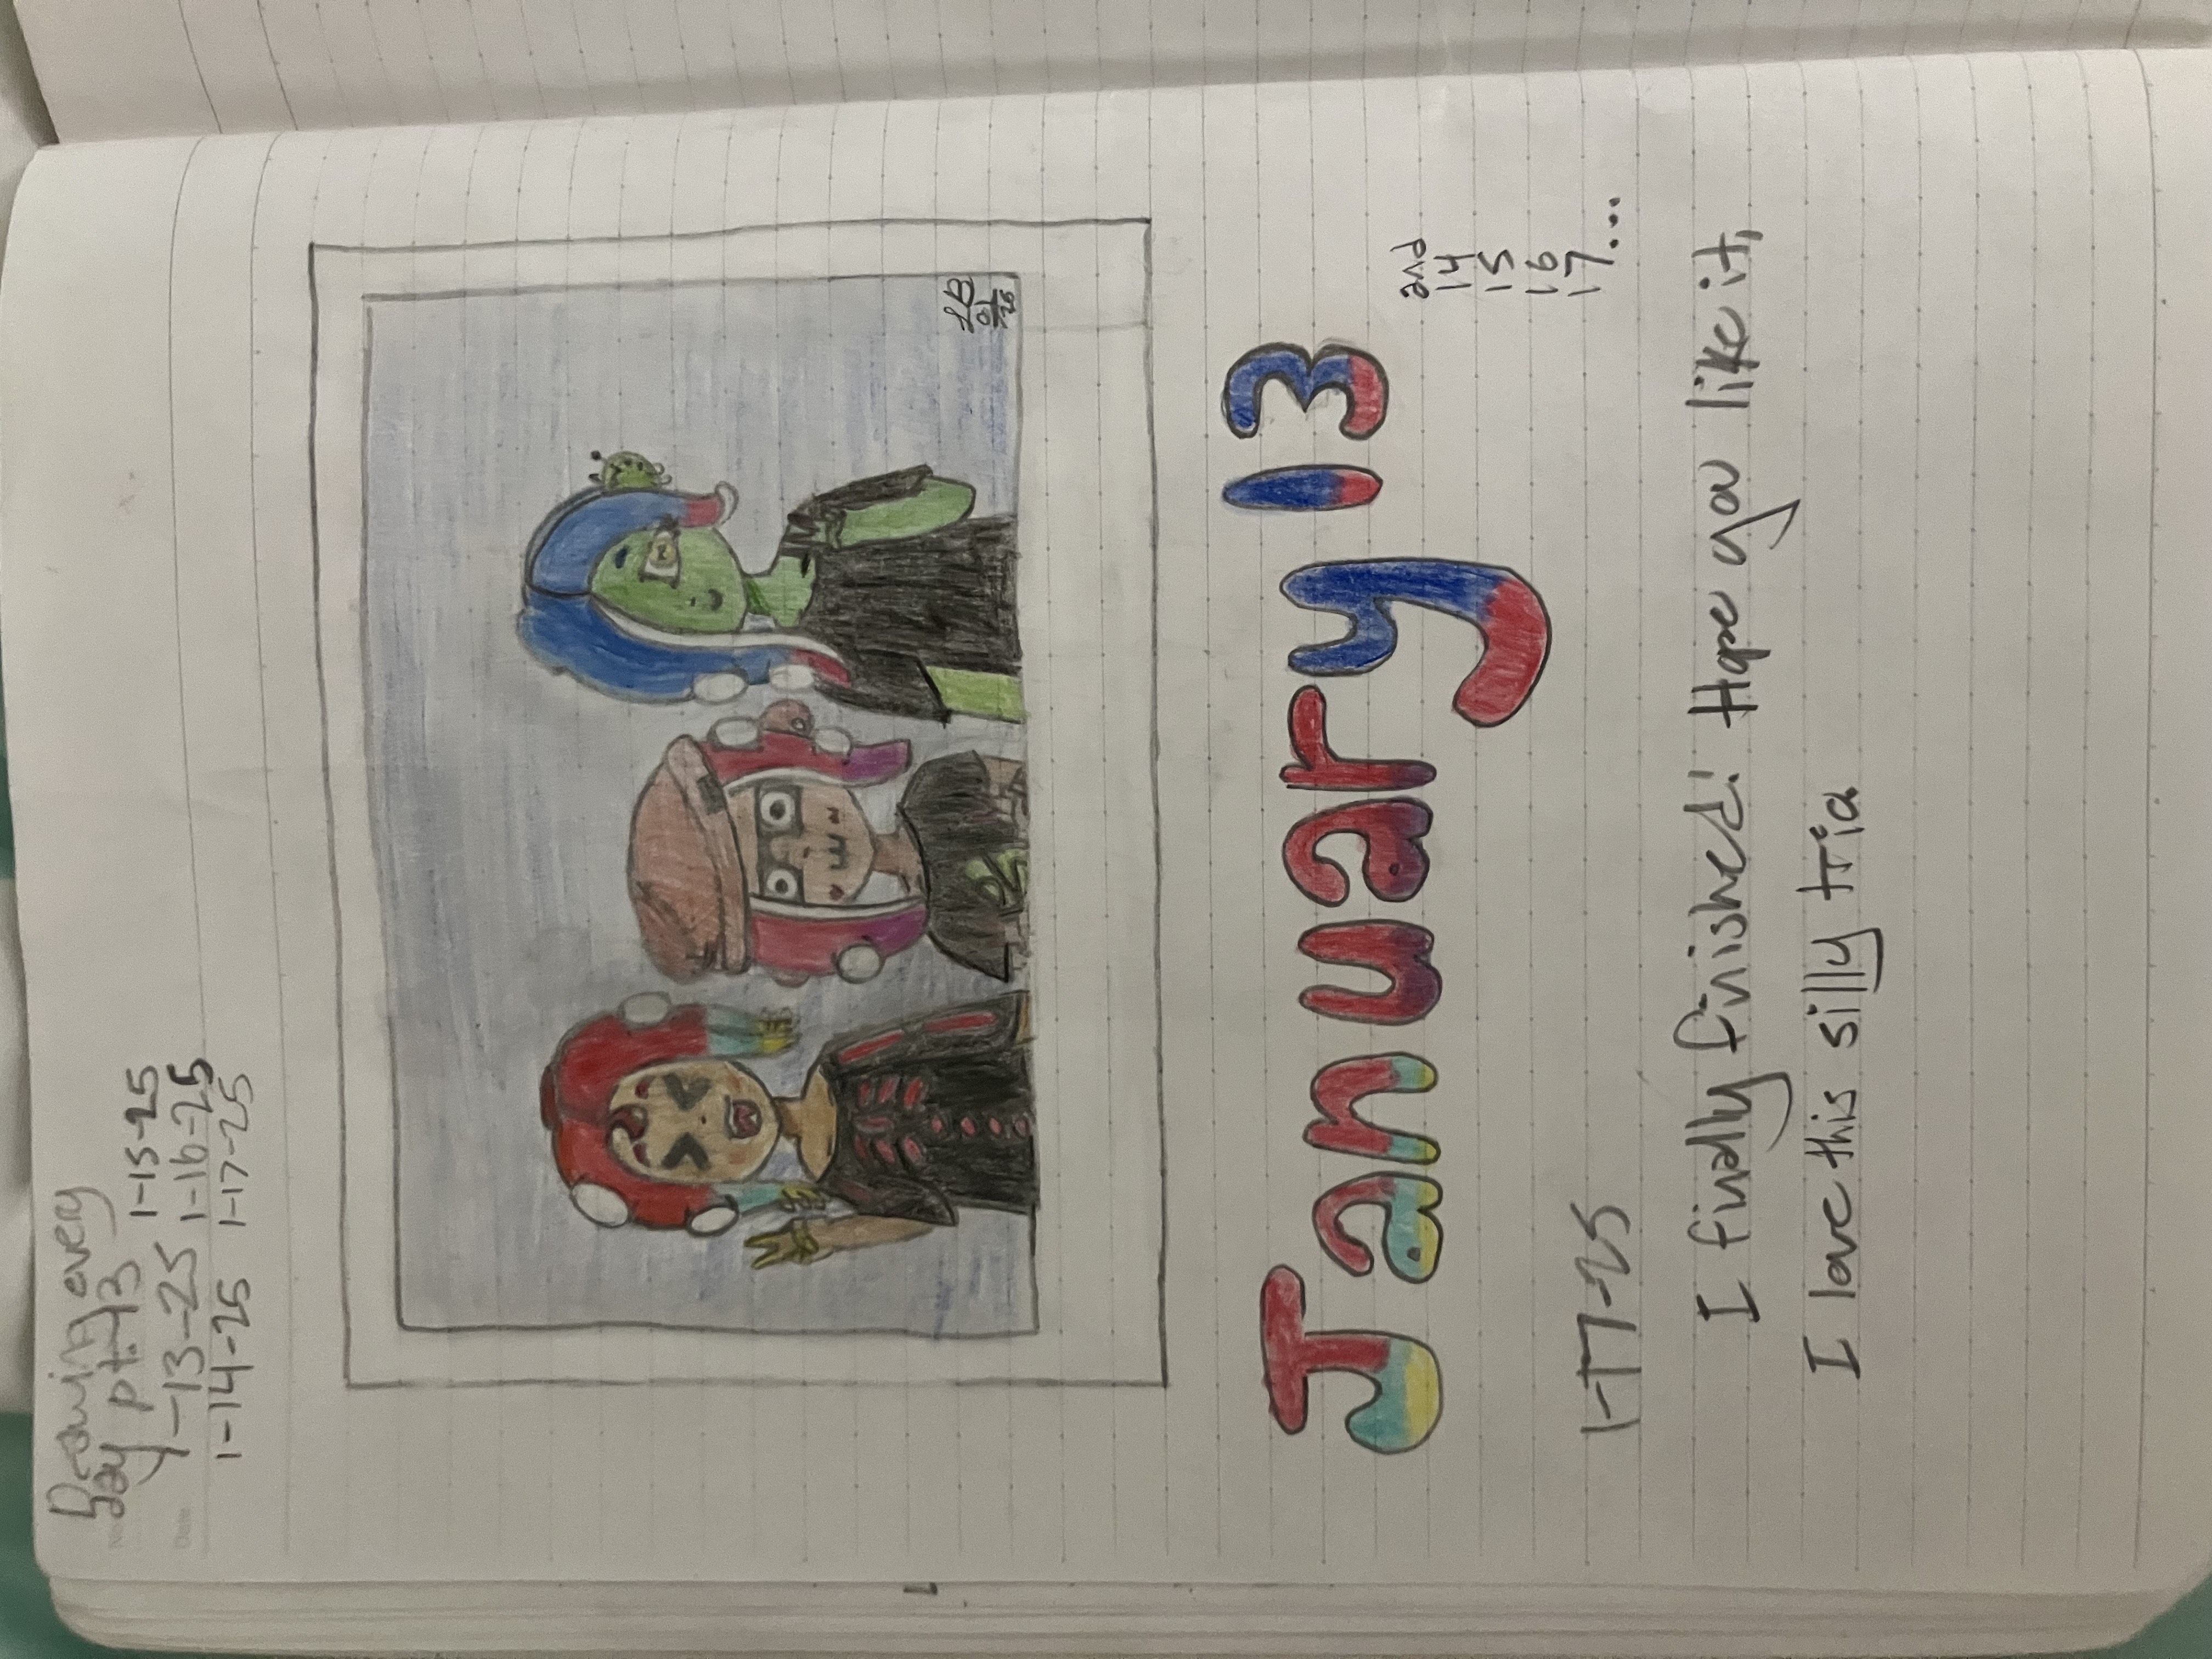 Drawing every
day pt. 13
1-13-25
1-14-25
1-15-25
1-16-25
1-17-25
LB
01
25
January 13
and
14
15
16
17...
1-17-25
I finally finished! Hope you like it,
I love this silly trio.